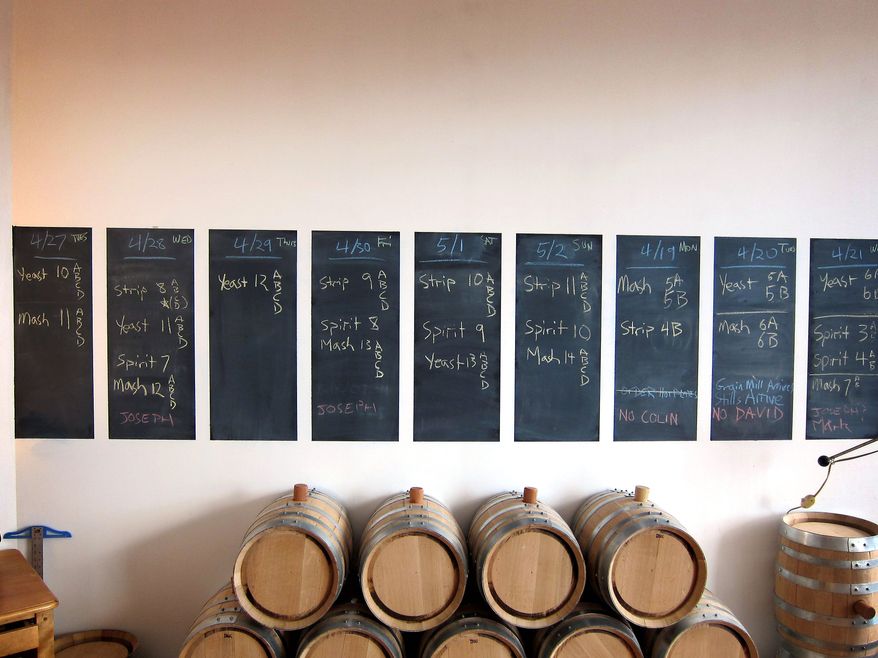 4/27 TUES
Yeast 10 A
B
C
D
Mash 11 A
B
C
D
4/28 WED
Strip 8 A
B
C
D
Yeast 11 A
B
C
D
Spirit 7
Mash 12 A
B
C
D
JOSEPH
4/29 THUR
Yeast 12 A
B
C
D
4/30 Fri
Strip 9 A
B
C
D
Spirit 8
Mash 13 A
B
C
D
JOSEPH
5/1 SAT
Strip 10 A
B
C
D
Spirit 9
Yeast 13 A
B
C
D
5/2 SUN
Strip 11 A
B
C
D
Spirit 10
Mash 14 A
B
C
D
4/19 MON
Mash 5A
5B
Strip 4B
ORDER HOT PLATES
NO COLIN
4/20 TUES
Yeast 6A
5B
Mash 6A
6B
Grain Mill Arrive
Stills Arrive
NO DAVID
4/21 W
Yeast 6A
6B
Spirit 3
Spirit 4
Mash 7
JOSEPH?
Mark